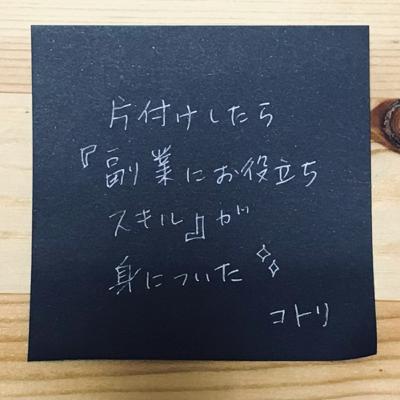 片付けしたら
『副業にお役立ち
スキル』が
身についた
コトリ